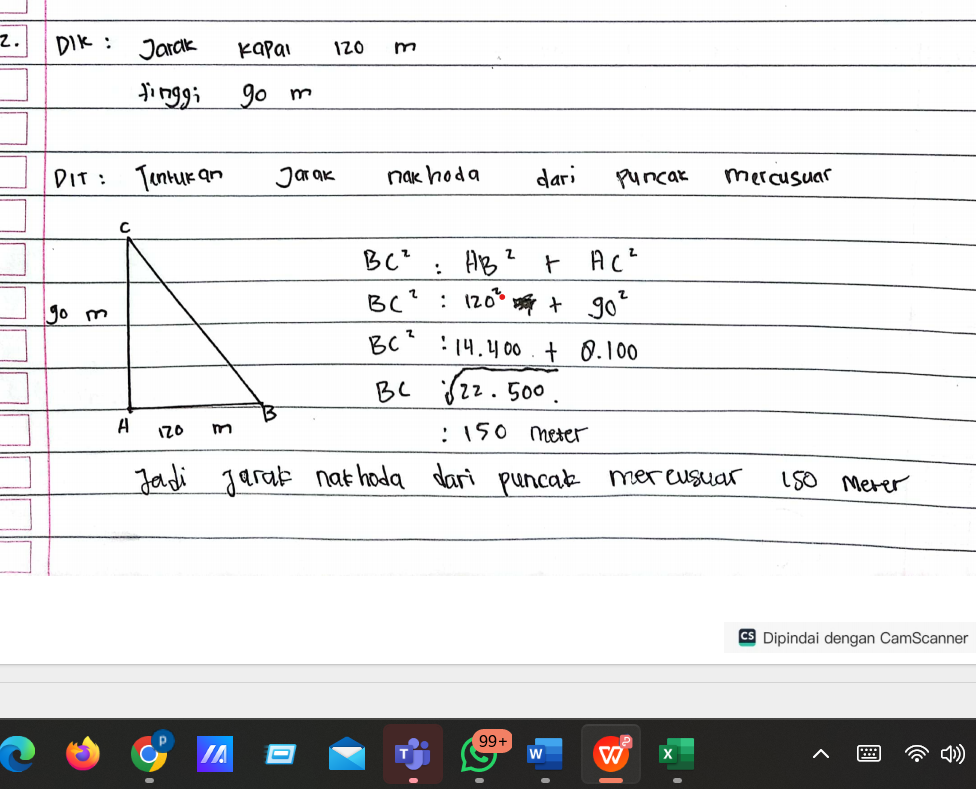 2. DIK : Jarak kapal 120 m
tinggi 90 m
DIT : Tentukan Jarak nakhoda dari puncak mercusuar
C
90 m
A 120 m B
BC² : AB² + AC²
BC² : 120² + 90²
BC² : 14.400 + 8.100
BC : √22.500
: 150 meter
Jadi jarak nakhoda dari puncak mercusuar 150 Meter
CS Dipindai dengan CamScanner
P
T
99+
W
W
P
X